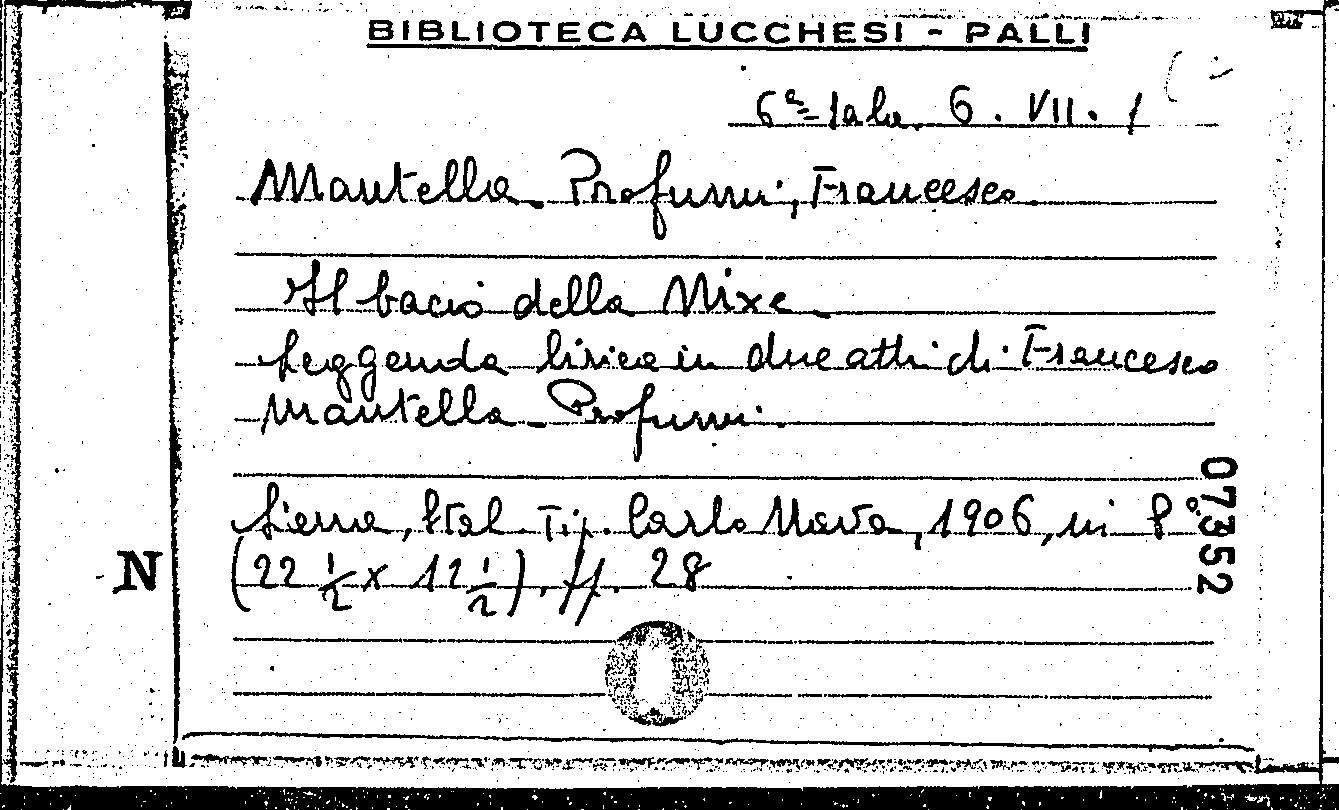 BIBLIOTECA LUCCHESI - PALLI
6ª Sala. 6. VII. 1
Mantella - Profumi, Francesco.
Il bacio della Nixe.
Leggenda lirica in due atti di Francesco
Mantella - Profumi.
Siena, Stab. Tip. Carlo Nava, 1906, in 8°
(22 1/2 x 12 1/2), pp. 28
073352
N